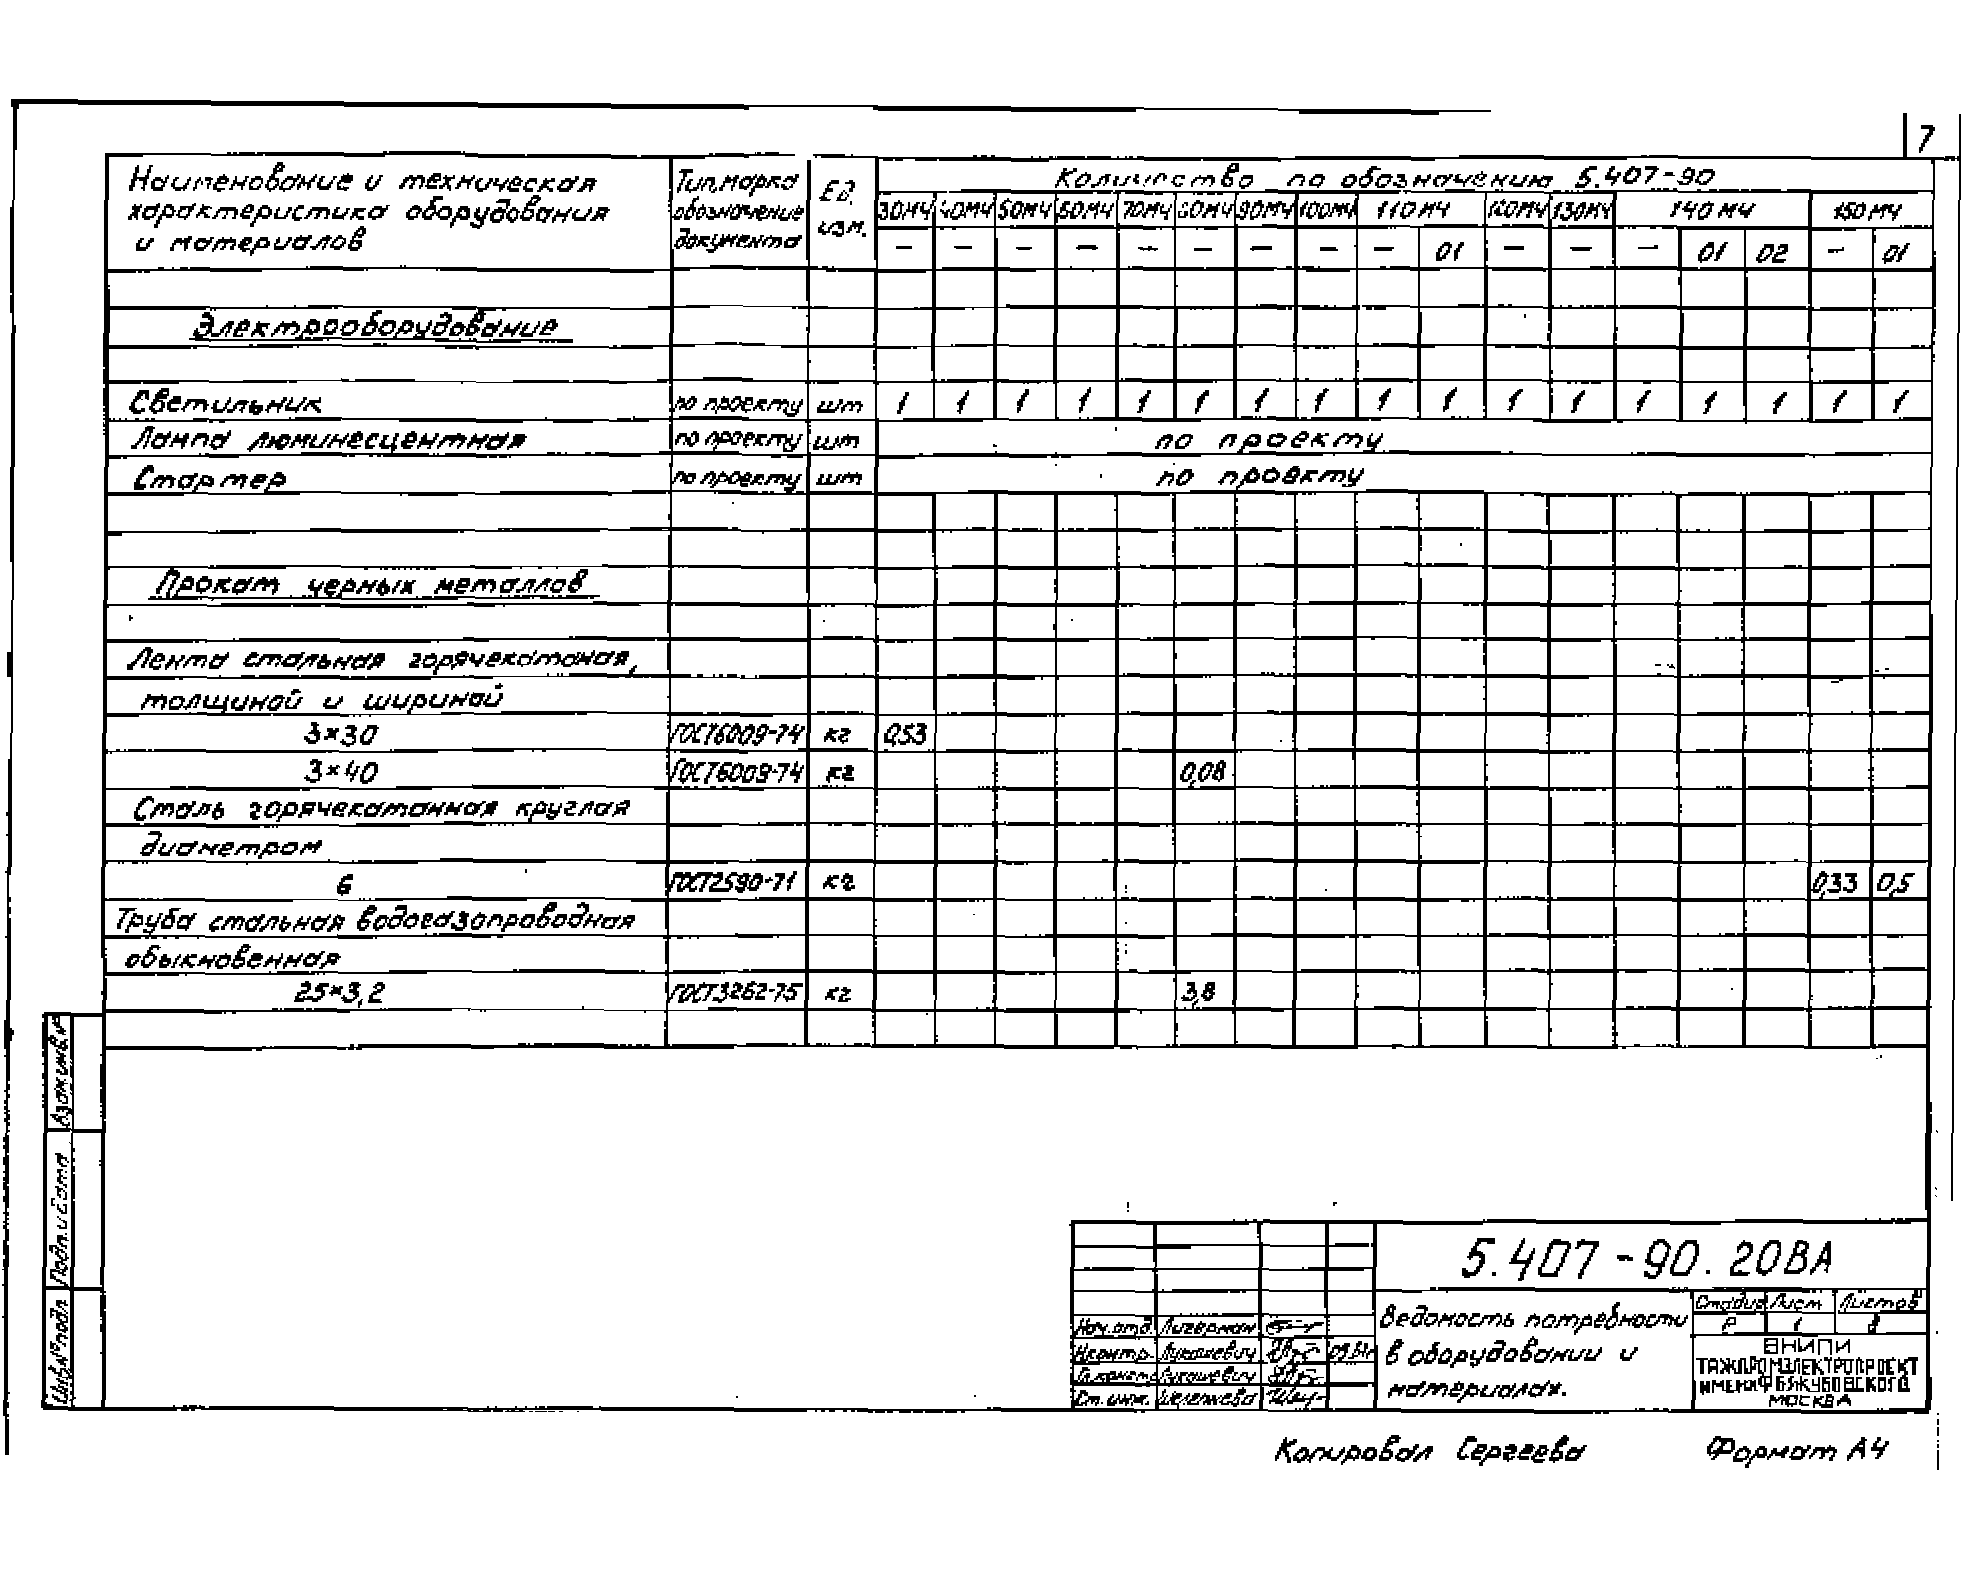 7
Наименование и техническая характеристика оборудования и материалов
Тип, марка обозначение документа
Ед. изм.
Количество по обозначению 5.407-90
30МЧ 40МЧ 50МЧ 60МЧ 70МЧ 80МЧ 90МЧ 100МЧ 110МЧ 120МЧ 130МЧ 140МЧ 150МЧ
— — — — — — — — — 01 — — — 01 02 — 01
Электрооборудование
Светильник по проекту шт 1 1 1 1 1 1 1 1 1 1 1 1 1 1 1 1 1
Лампа люминесцентная по проекту шт по проекту
Стартер по проекту шт по проекту
Прокат черных металлов
Лента стальная горячекатаная,
толщиной и шириной
3×30 ГОСТ6009-74 кг 0,53
3×40 ГОСТ6009-74 кг 0,08
Сталь горячекатанная круглая
диаметром
6 ГОСТ2590-71 кг 0,33 0,5
Труба стальная водогазопроводная
обыкновенная
25×3,2 ГОСТ3262-75 кг 3,8
Взам.инв.№
Подп. и дата
Инв.№ подл
5.407-90.20ВА
Нач.отд. Лигерман
Н.контр. Лукашевич
Лукашевич
Ст. инж.
Ведомость потребности
в оборудовании и
материалах.
Стадия Лист Листов
Р 1 8
ВНИПИ
ТЯЖПРОМЭЛЕКТРОПРОЕКТ
ИМЕНИ Ф.Б.ЯКУБОВСКОГО
МОСКВА
Копировал Сергеева Формат А4